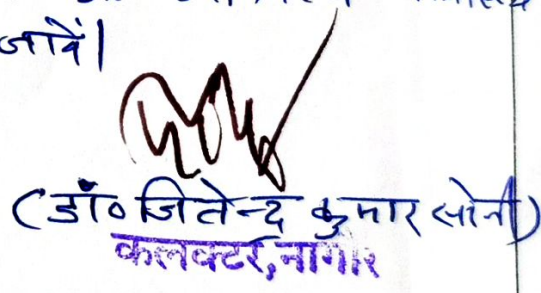 जावें।
(डॉ० जितेन्द्र कुमार सोनी)
कलक्टर, नागौर